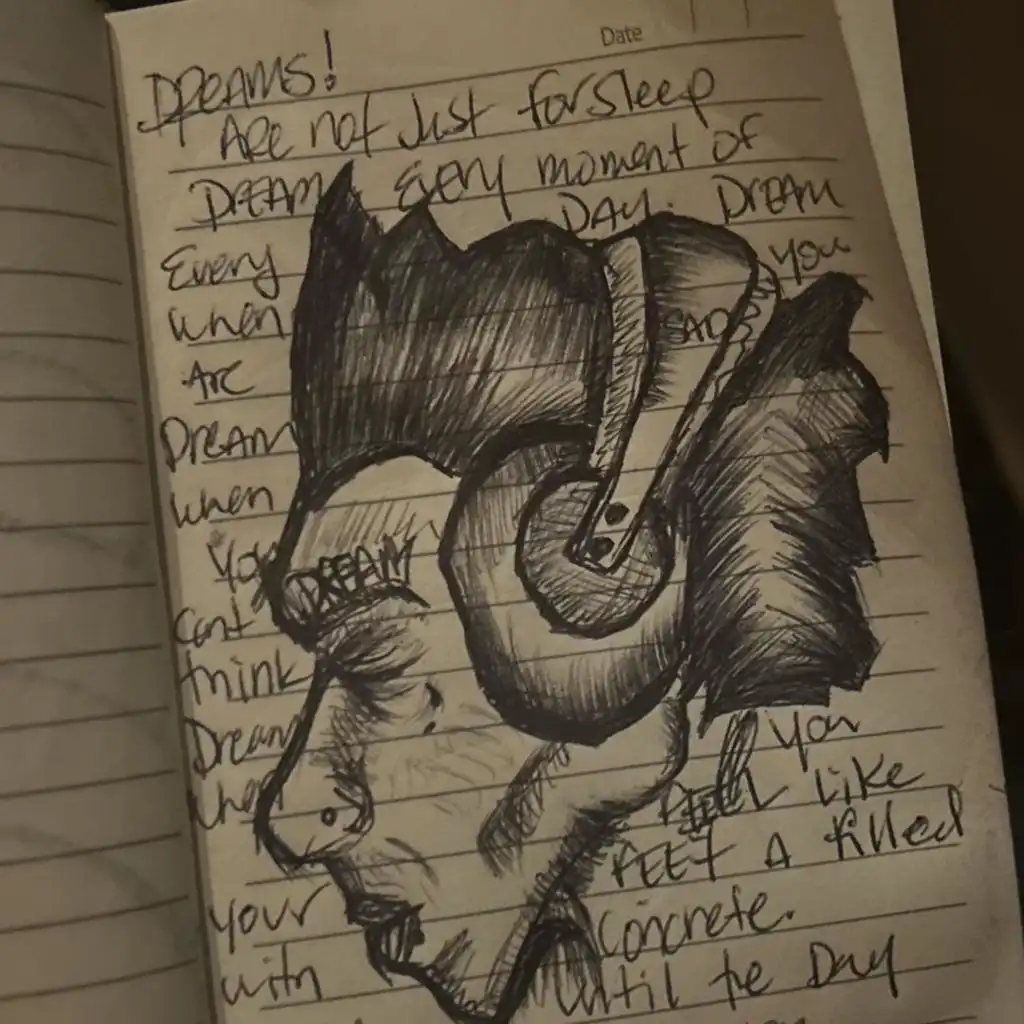 Date
DREAMS!
ARE not Just for Sleep
DREAM EVERY moment of
DAY. DREAM
Every you
when SAD
Are
DREAM
when
You DREAM
Cant
think
Dream
when you
FEEL LIKE
FEET A filled
your Concrete.
with until the Day